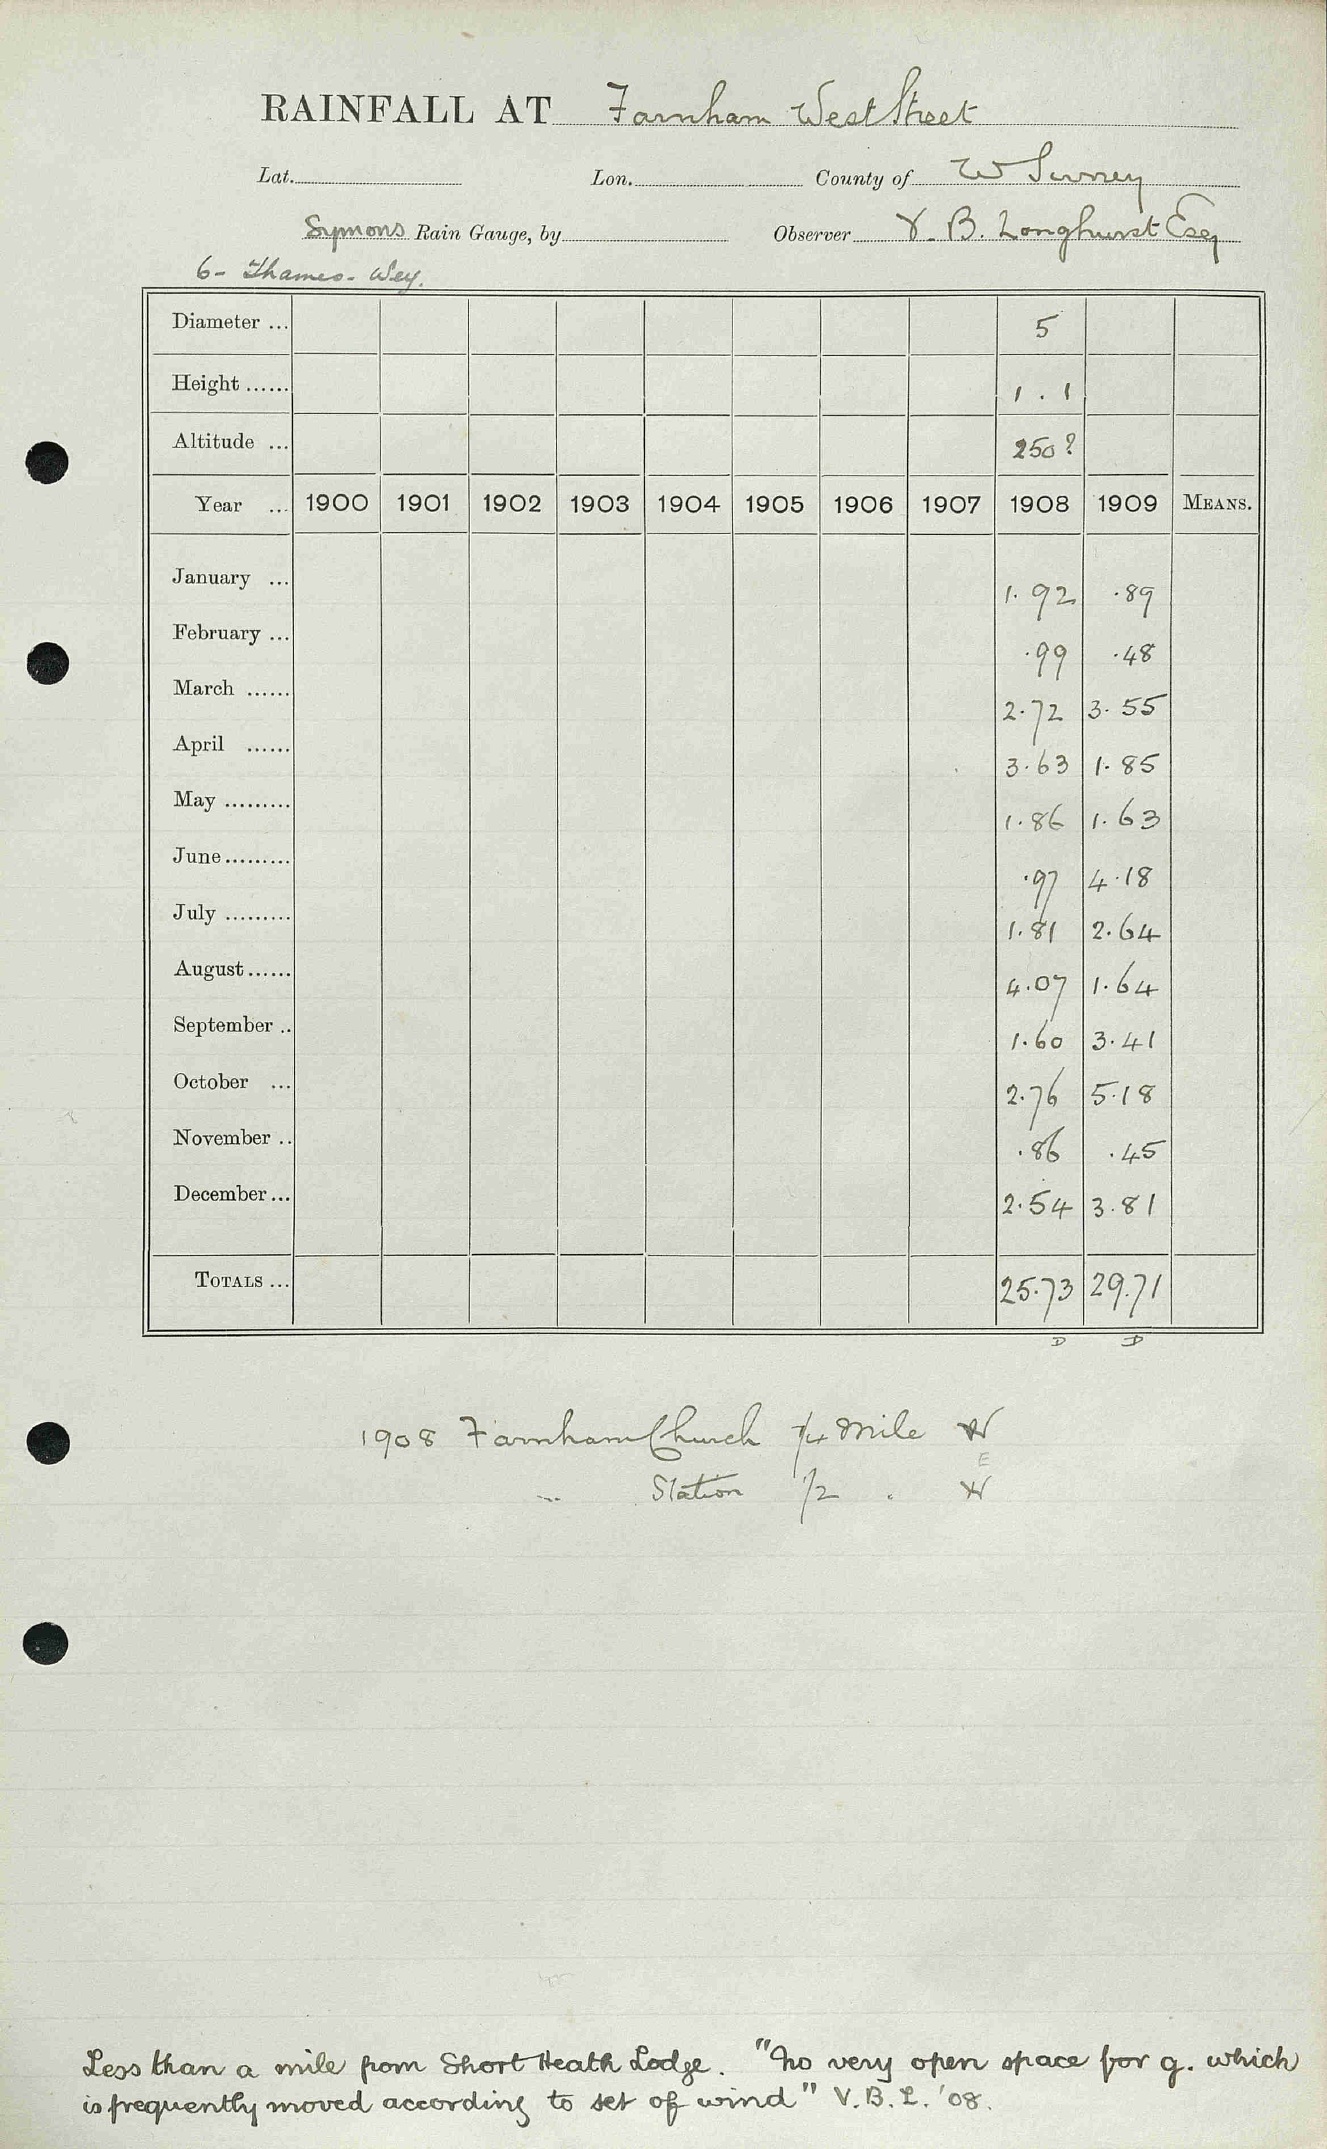 RAINFALL AT Farnham West Street
Lat. Lon. County of W Surrey
Symons Rain Gauge, by Observer V. B. Longhurst Esq
6 - Thames - Wey.
Diameter ... 5
Height ...... 1 . 1
Altitude ... 250?
Year ... 1900 1901 1902 1903 1904 1905 1906 1907 1908 1909 MEANS.
January ... 1.92 .89
February ... .99 .48
March ...... 2.72 3.55
April ...... 3.63 1.85
May ......... 1.86 1.63
June......... .97 4.18
July ......... 1.81 2.64
August...... 4.07 1.64
September .. 1.60 3.41
October ... 2.76 5.18
November .. .86 .45
December... 2.54 3.81
TOTALS ... 25.73 29.71
D D
1908 Farnham Church 1/4 Mile W
E
" Station 1/2 " W
Less than a mile from Short Heath Lodge. "No very open space for g. which
is frequently moved according to set of wind" V.B.L. '08.